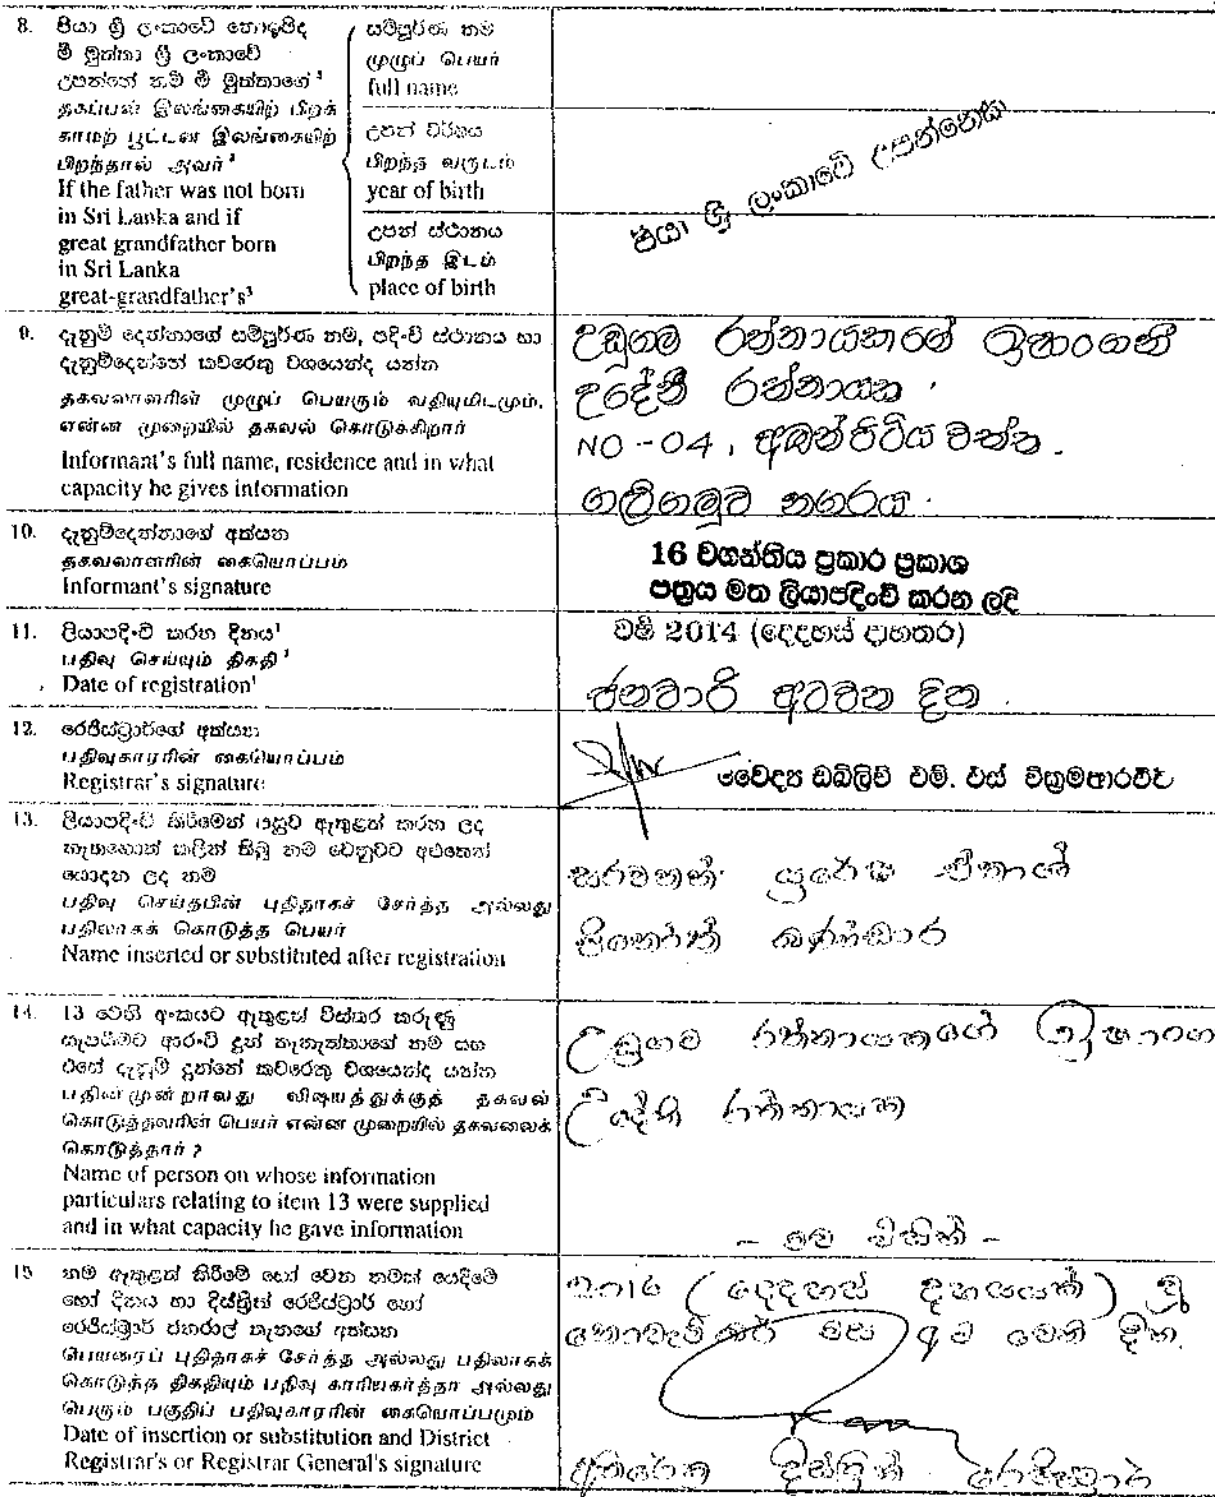 8. පියා ශ්‍රී ලංකාවේ නොඉපිද
මී මුත්තා ශ්‍රී ලංකාවේ
උපන්නේ නම් මී මුත්තාගේ³
தகப்பன் இலங்கையிற் பிறக்
காமற் பூட்டன் இலங்கையிற்
பிறந்தால் அவர்³
If the father was not born
in Sri Lanka and if
great grandfather born
in Sri Lanka
great-grandfather's³
සම්පූර්ණ නම
முழுப் பெயர்
full name
උපන් වර්ෂය
பிறந்த வருடம்
year of birth
උපන් ස්ථානය
பிறந்த இடம்
place of birth
පියා ශ්‍රී ලංකාවේ උපන්නෙකි
9. දැනුම් දෙන්නාගේ සම්පූර්ණ නම, පදිංචි ස්ථානය හා
දැනුම්දෙන්නේ කවරෙකු වශයෙන්ද යන්න
தகவலாளரின் முழுப் பெயரும் வதியுமிடமும்,
என்ன முறையில் தகவல் கொடுக்கிறார்
Informant's full name, residence and in what
capacity he gives information
උඩුගම රත්නායකගේ ඉෂාංගනී
උදේනී රත්නායක.
NO - 04, අඹන්පිටිය වත්ත.
ගලිගමුව නගරය.
10. දැනුම්දෙන්නාගේ අත්සන
தகவலாளரின் கையொப்பம்
Informant's signature
16 වගන්තිය ප්‍රකාර ප්‍රකාශ
පත්‍රය මත ලියාපදිංචි කරන ලදි
11. ලියාපදිංචි කරන දිනය¹
பதிவு செய்யும் திகதி¹
Date of registration¹
වර්ෂ 2014 (දෙදහස් දාහතර)
ජනවාරි අටවන දින.
12. රෙජිස්ට්‍රාර්ගේ අත්සන
பதிவுகாரரின் கையொப்பம்
Registrar's signature
වෛද්‍ය ඩබ්ලිව් එම්. එස් වික්‍රමආරච්චි
13. ලියාපදිංචි කිරීමෙන් පසුව ඇතුළත් කරන ලද
නැතහොත් කලින් තිබූ නම වෙනුවට අළුතෙන්
යොදන ලද නම
பதிவு செய்தபின் புதிதாகச் சேர்த்த அல்லது
பதிலாகக் கொடுத்த பெயர்
Name inserted or substituted after registration
සරවනන්
බණ්ඩාර
14. 13 වෙනි අංකයට ඇතුළත් විස්තර කරුණු
සැපයීමට ආරංචි දුන් තැනැත්තාගේ නම සහ
එසේ දැනුම් දුන්නේ කවරෙකු වශයෙන්ද යන්න
பதின்மூன்றாவது விஷயத்துக்குத் தகவல்
கொடுத்தவரின் பெயர் என்ன முறையில் தகவலைக்
கொடுத்தார் ?
Name of person on whose information
particulars relating to item 13 were supplied
and in what capacity he gave information
උඩුගම රත්නායකගේ ඉෂාංග
උදේනි රත්නායක
- මව විසින් -
15 නම ඇතුළත් කිරීමේ හෝ වෙන නමක් යෙදීමේ
හෝ දිනය හා දිස්ත්‍රික් රෙජිස්ට්‍රාර් හෝ
රෙජිස්ට්‍රාර් ජනරාල් තැනගේ අත්සන
பெயரைப் புதிதாகச் சேர்த்த அல்லது பதிலாகக்
கொடுத்த திகதியும் பதிவு காரியகர்த்தா அல்லது
பெரும் பகுதிப் பதிவுகாரரின் கையொப்பமும்
Date of insertion or substitution and District
Registrar's or Registrar General's signature
2016 (දෙදහස් දහසයක්) වූ
නොවැම්බර් මස අට වෙනි දින.
අතිරේක දිස්ත්‍රික් රෙජිස්ට්‍රාර්